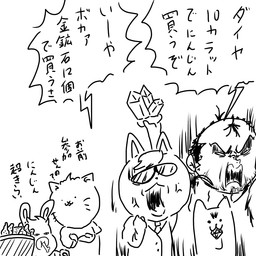 ダイヤ
10カラット
でにんじん
買うぞ
いーや
ボカァ
金鉱石12個
で買うさ
お前
参加
やんの
にんじん
超きらい